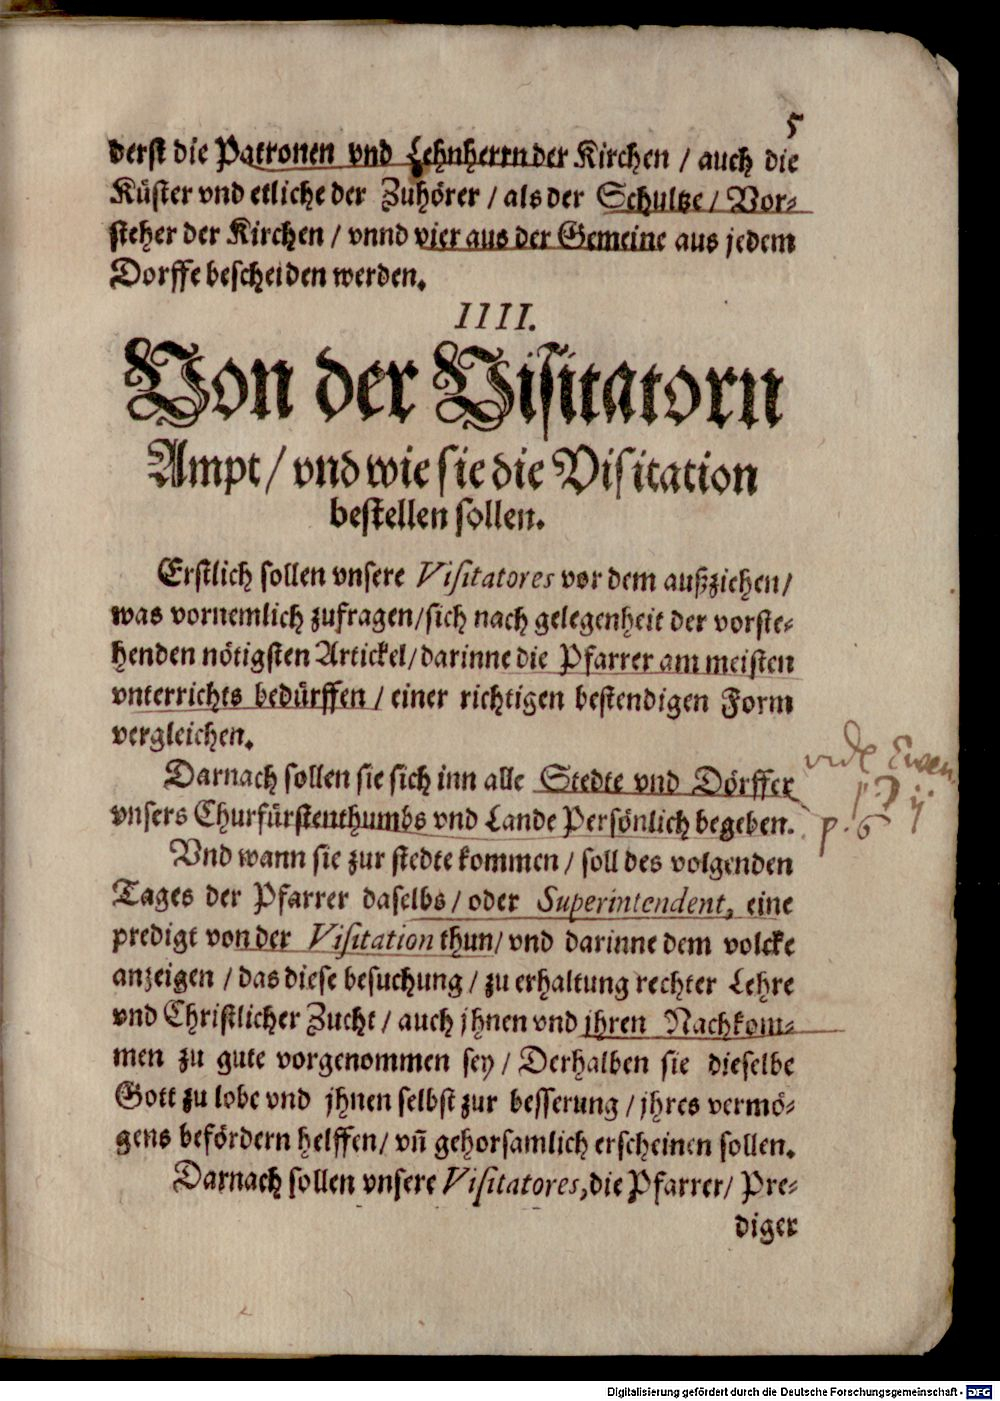 5
derst die Patronen vnd Lehnherrn der Kirchen / auch die
Küster vnd etliche der Zuhörer / als der Schultze / Vor-
steher der Kirchen / vnnd vier aus der Gemeine aus jedem
Dorffe bescheiden werden.
IIII.
Von der Visitatorn
Ampt / vnd wie sie die Visitation
bestellen sollen.
Erstlich sollen vnsere Visitatores vor dem außziehen /
was vornemlich zufragen / sich nach gelegenheit der vorste-
henden nötigsten Artickel / darinne die Pfarrer am meisten
vnterrichts bedürffen / einer richtigen bestendigen Form
vergleichen.
Darnach sollen sie sich inn alle Stedte vnd Dörffer
vnsers Churfürstenthumbs vnd Lande Persönlich begeben.
vide
p. 6
Vnd wann sie zur stedte kommen / soll des volgenden
Tages der Pfarrer daselbs / oder Superintendent, eine
predigt von der Visitation thun / vnd darinne dem volcke
anzeigen / das diese besuchung / zu erhaltung rechter Lehre
vnd Christlicher Zucht / auch jhnen vnd jhren Nachkom-
men zu gute vorgenommen sey / Derhalben sie dieselbe
Gott zu lobe vnd jhnen selbst zur besserung / jhres vermö-
gens befördern helffen / vñ gehorsamlich erscheinen sollen.
Darnach sollen vnsere Visitatores, die Pfarrer / Pre-
diger
Digitalisierung gefördert durch die Deutsche Forschungsgemeinschaft - DFG